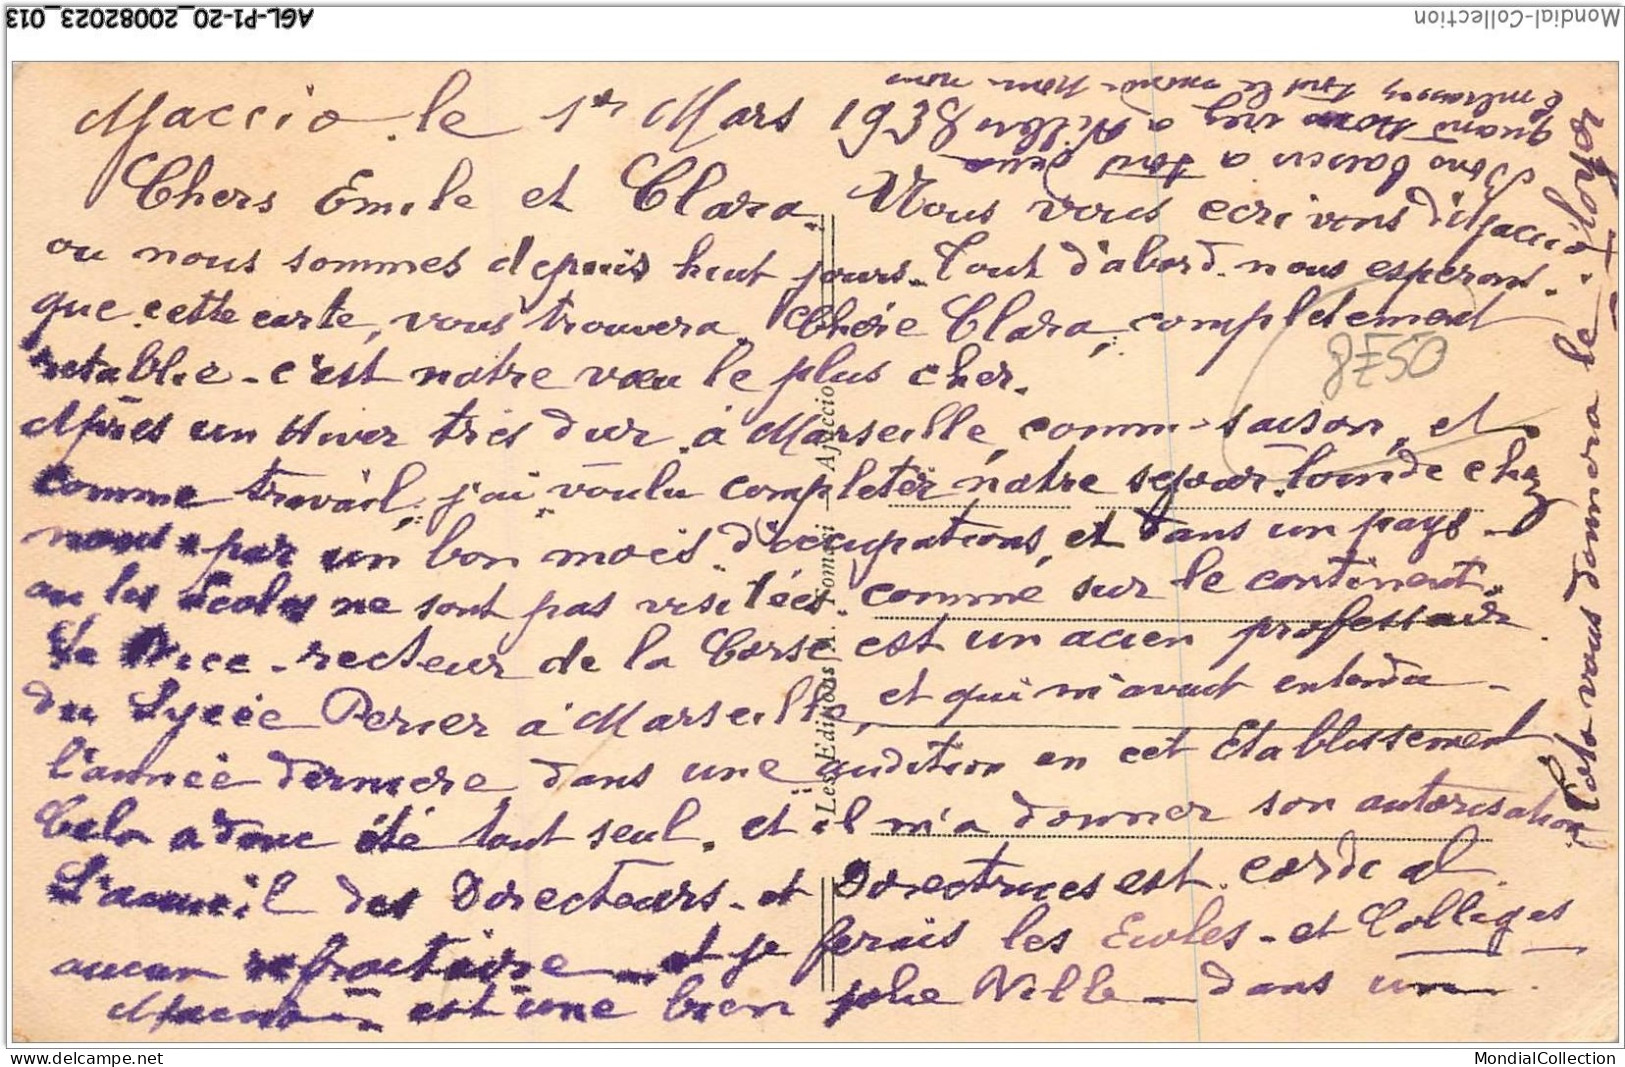 AGL-P1-20_20082023_013
Mondial-Collection
Ajaccio. le 1er Mars 1938
Chers Emile et Clara. Nous vous ecrivons d'Ajaccio
ou nous sommes depuis huit jours. Tout d'abord. nous esperons.
que cette carte, vous trouvera. Chère Clara, complètement
retablie - c'est notre vœu le plus cher.
Après un Hiver très dur, à Marseille, comme saison, et
comme travail, j'ai voulu completer notre sejour. loin de chez
nous, par un bon mois d'occupations, et dans un pays -
ou les Ecoles ne sont pas visitées. comme sur le continent.
Le Vice-recteur de la Corse est un acien professeur
du Lycée Perier à Marseille, et qui m'avait entendu -
l'année dernière dans une audition en cet Etablissement
Cela a donc été tout seul. et il m'a donner son autorisation.
L'acueil des Directeurs - et Directrices est. cordial.
aucun refractaire - et je ferais les Ecoles - et Collèges
Ajaccio - est une bien jolie Ville - dans un
Cela vous donnera le loyer
Bons baisers a tous deux
quand
embrassons tout le monde
8E50
Les Editions A. Tomasi - Ajaccio
MondialCollection